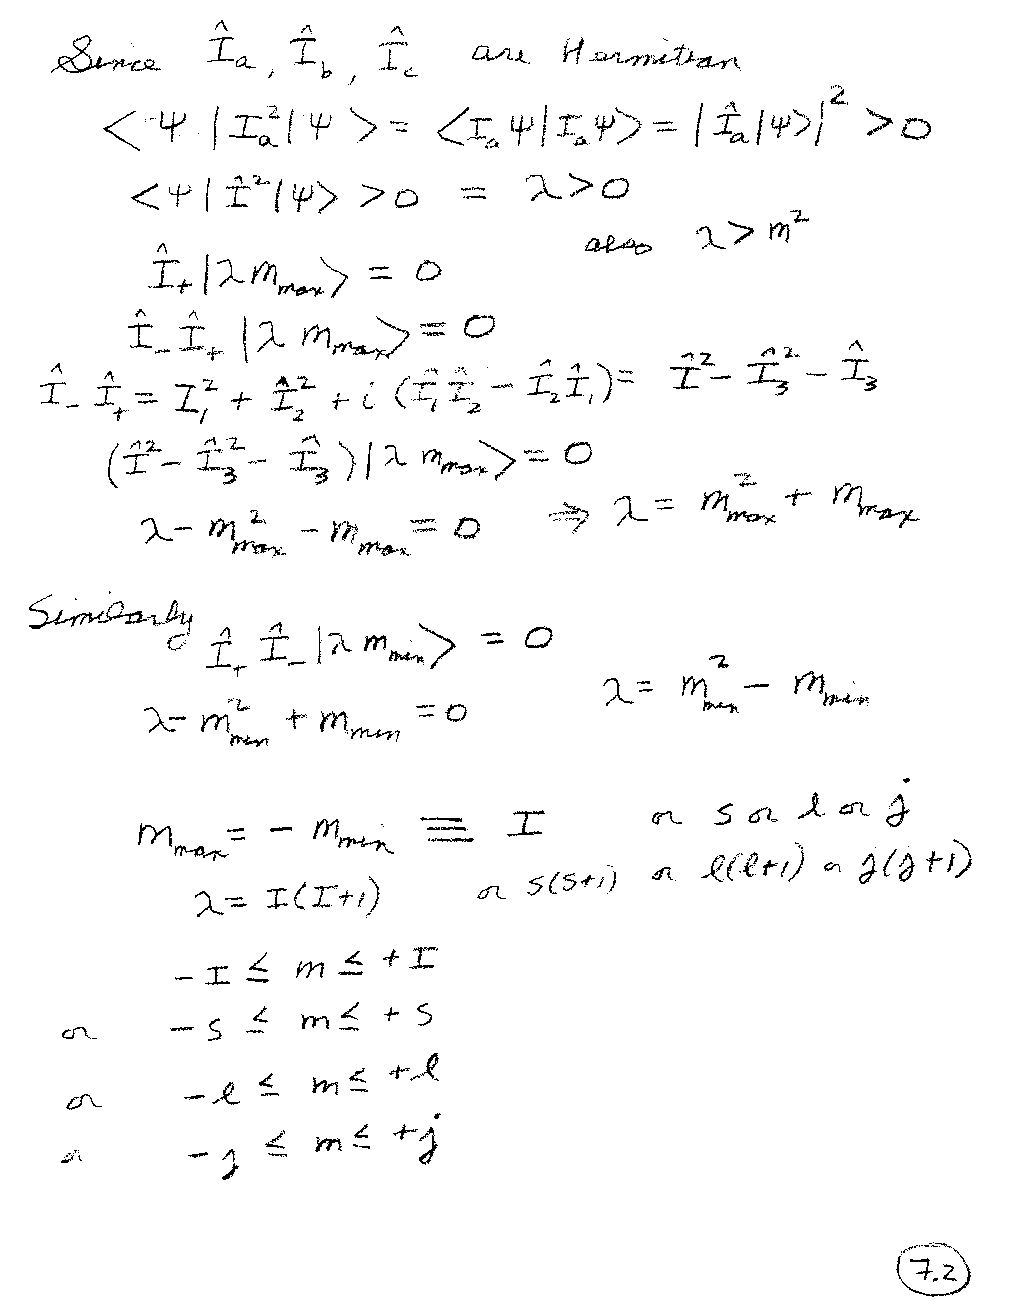 Since Î_a, Î_b, Î_c are Hermitian
<ψ|I_a²|ψ> = <I_aψ|I_aψ> = |Î_a|ψ>|² > 0
<ψ|Î²|ψ> > 0 = λ > 0
also λ > m²
Î₊|λ m_max> = 0
Î₋Î₊|λ m_max> = 0
Î₋Î₊ = I₁² + Î₂² + i(Î₁Î₂ - Î₂Î₁) = Î² - Î₃² - Î₃
(Î² - Î₃² - Î₃)|λ m_max> = 0
λ - m²_max - m_max = 0 ⇒ λ = m²_max + m_max
Similarly
Î₊Î₋|λ m_min> = 0
λ - m²_min + m_min = 0 λ = m²_min - m_min
m_max = - m_min ≡ I or s or l or j
λ = I(I+1) or s(s+1) or l(l+1) or j(j+1)
-I ≤ m ≤ +I
or -s ≤ m ≤ +s
or -l ≤ m ≤ +l
or -j ≤ m ≤ +j
7.2